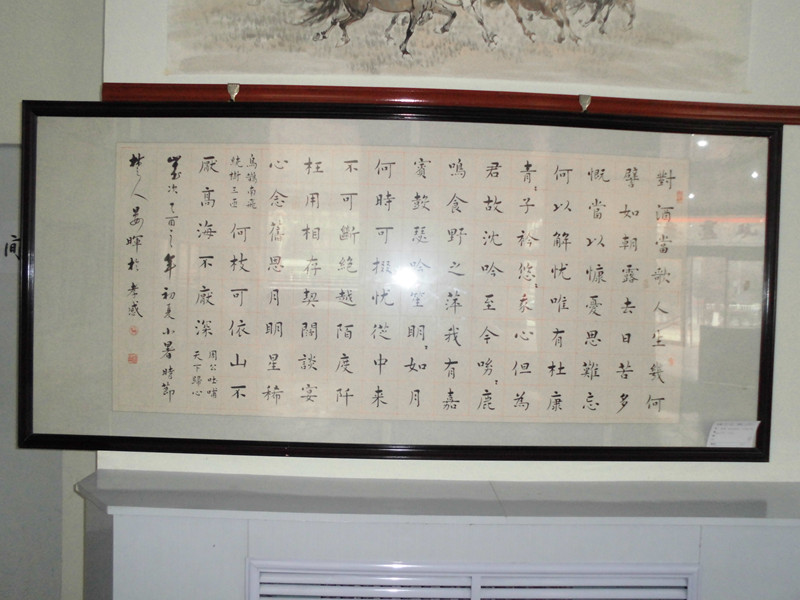 對酒當歌人生幾何
譬如朝露去日苦多
慨當以慷憂思難忘
何以解忧唯有杜康
青〻子衿悠〻我心但為
君故沈吟至今呦〻鹿
鳴食野之萍我有嘉
賓鼓瑟吟笙明〻如月
何時可掇忧從中来
不可斷絕越陌度阡
枉用相存契闊談宴
心念舊恩月明星稀
烏鵲南飛
繞樹三匝
何枝可依山不
厭高海不厭深
周公吐哺
天下歸心
歲次乙酉之年初夏小暑時節
楚人晏暉於孝感
间